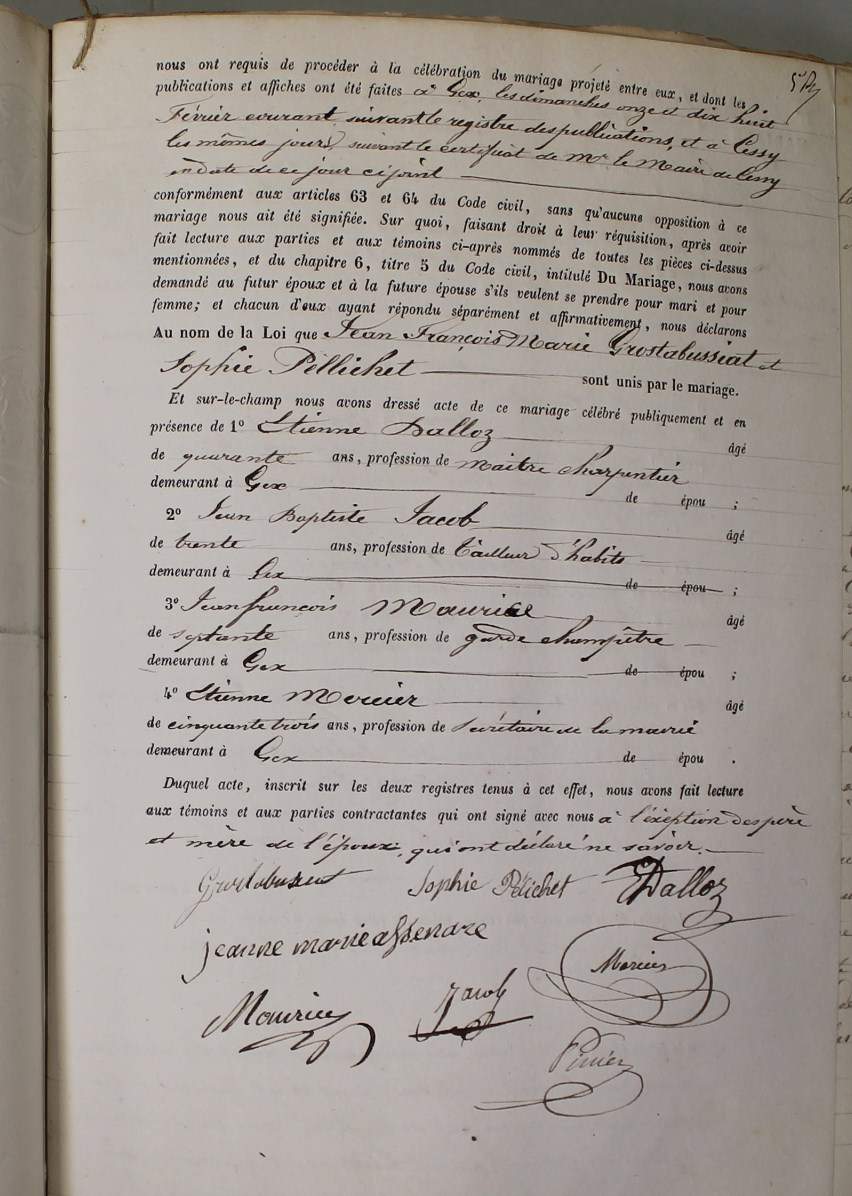 nous ont requis de procéder à la célébration du mariage projeté entre eux, et dont les
publications et affiches ont été faites à Gex, les dimanches onze et dix huit
Février courant suivant le registre des publications, et à Cessy
les mêmes jours, suivant le certificat de Mr. le Maire de Cessy
en date de ce jour ci joint
conformément aux articles 63 et 64 du Code civil, sans qu'aucune opposition à ce
mariage nous ait été signifiée. Sur quoi, faisant droit à leur réquisition, après avoir
fait lecture aux parties et aux témoins ci-après nommés de toutes les pièces ci-dessus
mentionnées, et du chapitre 6, titre 5 du Code civil, intitulé Du Mariage, nous avons
demandé au futur époux et à la future épouse s'ils veulent se prendre pour mari et pour
femme; et chacun d'eux ayant répondu séparément et affirmativement, nous déclarons
Au nom de la Loi que Jean François Marie Grostabussiat et
Sophie Pellichet sont unis par le mariage.
Et sur-le-champ nous avons dressé acte de ce mariage célébré publiquement et en
présence de 1º Etienne Dalloz âgé
de quarante ans, profession de maitre charpentier
demeurant à Gex de épou ;
2º Jean Baptiste Jacob âgé
de trente ans, profession de tailleur d'habits
demeurant à Gex de épou ;
3º Jean françois Maurice âgé
de septante ans, profession de garde champêtre
demeurant à Gex de épou ;
4º Etienne Mercier âgé
de cinquante trois ans, profession de secrétaire de la mairie
demeurant à Gex de épou .
Duquel acte, inscrit sur les deux registres tenus à cet effet, nous avons fait lecture
aux témoins et aux parties contractantes qui ont signé avec nous à l'éxéption des père
et mère de l'époux, qui ont déclaré ne savoir.
Grostabussiat Sophie Pélichet EDalloz
jeanne marie assenare
Mercier
Maurice Jacob